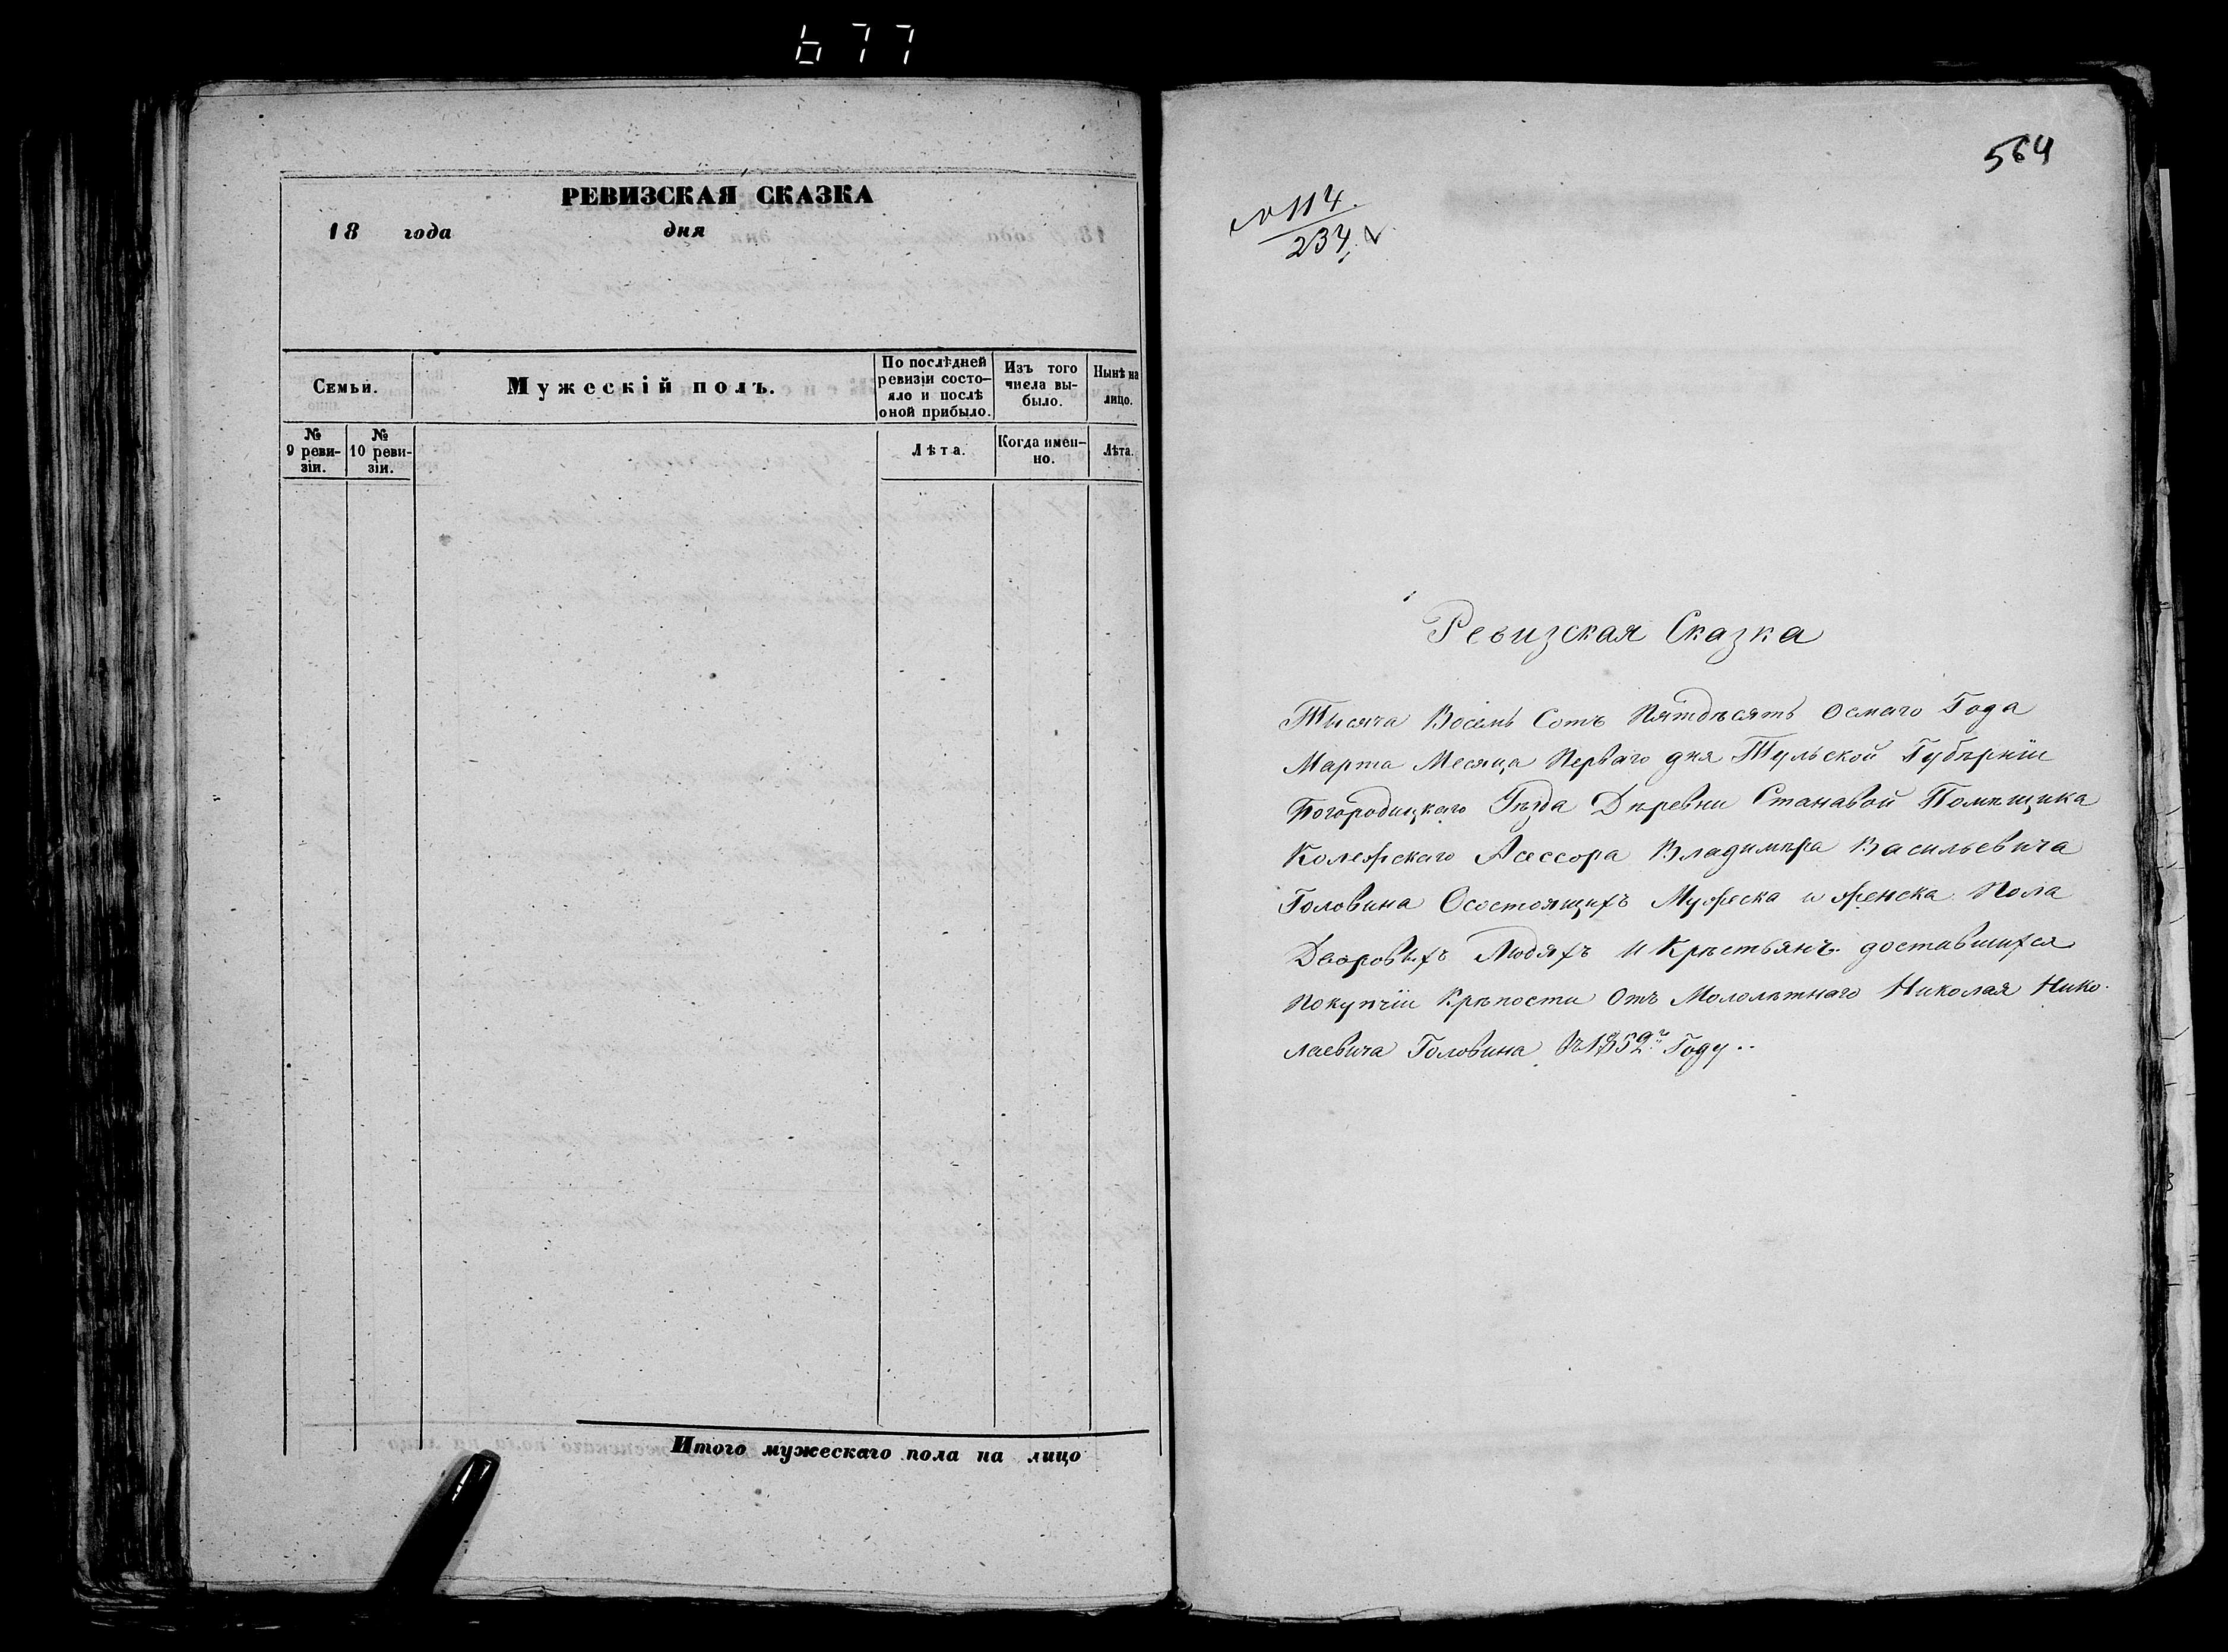 677
РЕВИЗСКАЯ СКАЗКА
18 года дня
Семьи.
Мужескій полъ.
По послѣдней ревизіи состо-яло и послѣ оной прибыло.
Изъ того числа вы-было.
Нынѣ на лицо.
№ 9 реви-зіи.
№ 10 реви-зіи.
Лѣта.
Когда имен-но.
Лѣта.
Итого мужескаго пола на лицо
564
№ 114.
234,
Ревизская Сказка
Тысяча Восемь Сотъ Пятдѣсятъ Осмаго Года
Марта Месяца Перваго дня Тульской Губѣрніи
Богородицкаго Уѣзда Дѣревни Становой Помѣщика
Колежскаго Асессора Владимѣра Васильевича
Головина Осостоящихъ Мужеска и женска Пола
Дворовыхъ Людяхъ И Крѣстьянъ доставшихся
Покупчіи Крѣпости Отъ Мололѣтнаго Николая Нико-
лаевича Головина Въ 1852г. Году..